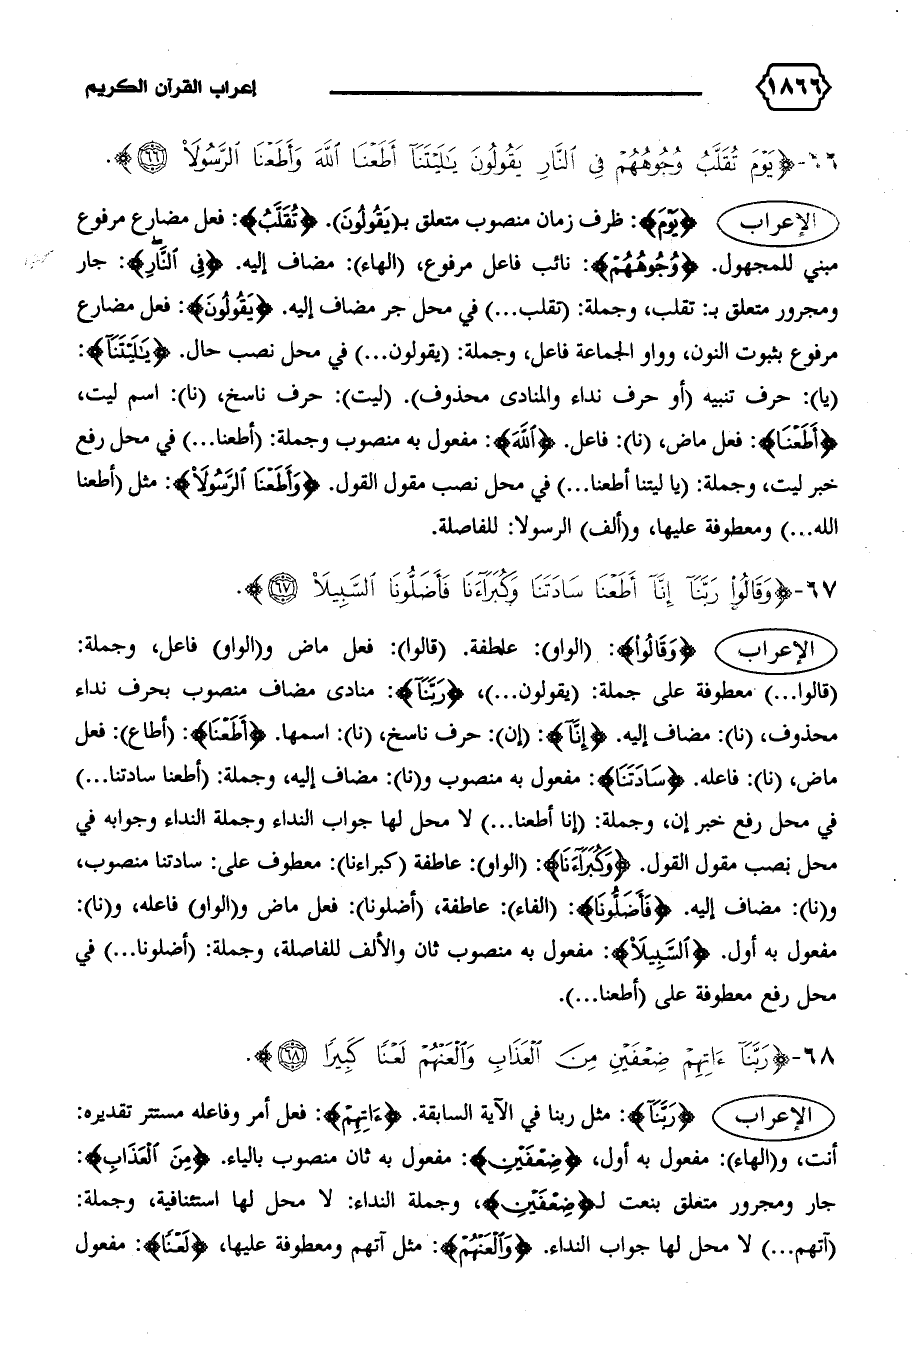 ١٨٦٦ إعراب القرآن الكريم
٦٦-﴿يَوْمَ تُقَلَّبُ وُجُوهُهُمْ فِي ٱلنَّارِ يَقُولُونَ يَٰلَيْتَنَآ أَطَعْنَا ٱللَّهَ وَأَطَعْنَا ٱلرَّسُولَا۠ ٦٦﴾.
الإعراب ﴿يَوْمَ﴾: ظرف زمان منصوب متعلق بـ(يَقُولُونَ). ﴿تُقَلَّبُ﴾: فعل مضارع مرفوع
مبني للمجهول. ﴿وُجُوهُهُمْ﴾: نائب فاعل مرفوع، (الهاء): مضاف إليه. ﴿فِي ٱلنَّارِ﴾: جار
ومجرور متعلق بـ: تقلب، وجملة: (تقلب...) في محل جر مضاف إليه. ﴿يَقُولُونَ﴾: فعل مضارع
مرفوع بثبوت النون، وواو الجماعة فاعل، وجملة: (يقولون...) في محل نصب حال. ﴿يَٰلَيْتَنَآ﴾:
(يا): حرف تنبيه (أو حرف نداء والمنادى محذوف). (ليت): حرف ناسخ، (نا): اسم ليت،
﴿أَطَعْنَا﴾: فعل ماض، (نا): فاعل. ﴿ٱللَّهَ﴾: مفعول به منصوب وجملة: (أطعنا...) في محل رفع
خبر ليت، وجملة: (يا ليتنا أطعنا...) في محل نصب مقول القول. ﴿وَأَطَعْنَا ٱلرَّسُولَا۠﴾: مثل (أطعنا
الله...) ومعطوفة عليها، و(ألف) الرسولا: للفاصلة.
٦٧-﴿وَقَالُوا۟ رَبَّنَآ إِنَّآ أَطَعْنَا سَادَتَنَا وَكُبَرَآءَنَا فَأَضَلُّونَا ٱلسَّبِيلَا۠ ٦٧﴾.
الإعراب ﴿وَقَالُوا۟﴾: (الواو): عاطفة. (قالوا): فعل ماض و(الواو) فاعل، وجملة:
(قالوا...) معطوفة على جملة: (يقولون...)، ﴿رَبَّنَآ﴾: منادى مضاف منصوب بحرف نداء
محذوف، (نا): مضاف إليه. ﴿إِنَّآ﴾: (إن): حرف ناسخ، (نا): اسمها. ﴿أَطَعْنَا﴾: (أطاع): فعل
ماض، (نا): فاعله. ﴿سَادَتَنَا﴾: مفعول به منصوب و(نا): مضاف إليه، وجملة: (أطعنا سادتنا...)
في محل رفع خبر إن، وجملة: (إنا أطعنا...) لا محل لها جواب النداء وجملة النداء وجوابه في
محل نصب مقول القول. ﴿وَكُبَرَآءَنَا﴾: (الواو): عاطفة (كبراءنا): معطوف على: سادتنا منصوب،
و(نا): مضاف إليه. ﴿فَأَضَلُّونَا﴾: (الفاء): عاطفة، (أضلونا): فعل ماض و(الواو) فاعله، و(نا):
مفعول به أول. ﴿ٱلسَّبِيلَا۠﴾: مفعول به منصوب ثان والألف للفاصلة، وجملة: (أضلونا...) في
محل رفع معطوفة على (أطعنا...).
٦٨-﴿رَبَّنَآ ءَاتِهِمْ ضِعْفَيْنِ مِنَ ٱلْعَذَابِ وَٱلْعَنْهُمْ لَعْنًا كَبِيرًا ٦٨﴾.
الإعراب ﴿رَبَّنَآ﴾: مثل ربنا في الآية السابقة. ﴿ءَاتِهِمْ﴾: فعل أمر وفاعله مستتر تقديره:
أنت، و(الهاء): مفعول به أول، ﴿ضِعْفَيْنِ﴾: مفعول به ثان منصوب بالياء. ﴿مِنَ ٱلْعَذَابِ﴾:
جار ومجرور متعلق بنعت لـ﴿ضِعْفَيْنِ﴾، وجملة النداء: لا محل لها استئنافية، وجملة:
(آتهم...) لا محل لها جواب النداء. ﴿وَٱلْعَنْهُمْ﴾: مثل آتهم ومعطوفة عليها، ﴿لَعْنًا﴾: مفعول